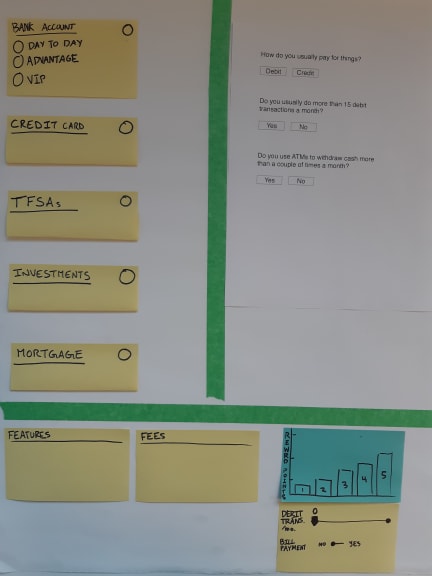 BANK ACCOUNT
DAY TO DAY
ADVANTAGE
VIP
CREDIT CARD
TFSAs
INVESTMENTS
MORTGAGE
How do you usually pay for things?
Debit Credit
Do you usually do more than 15 debit
transactions a month?
Yes No
Do you use ATMs to withdraw cash more
than a couple of times a month?
Yes No
FEATURES
FEES
REWRD POINTS
1 2 3 4 5
DEBIT
TRANS.
/mo.
0
BILL
PAYMENT
NO YES